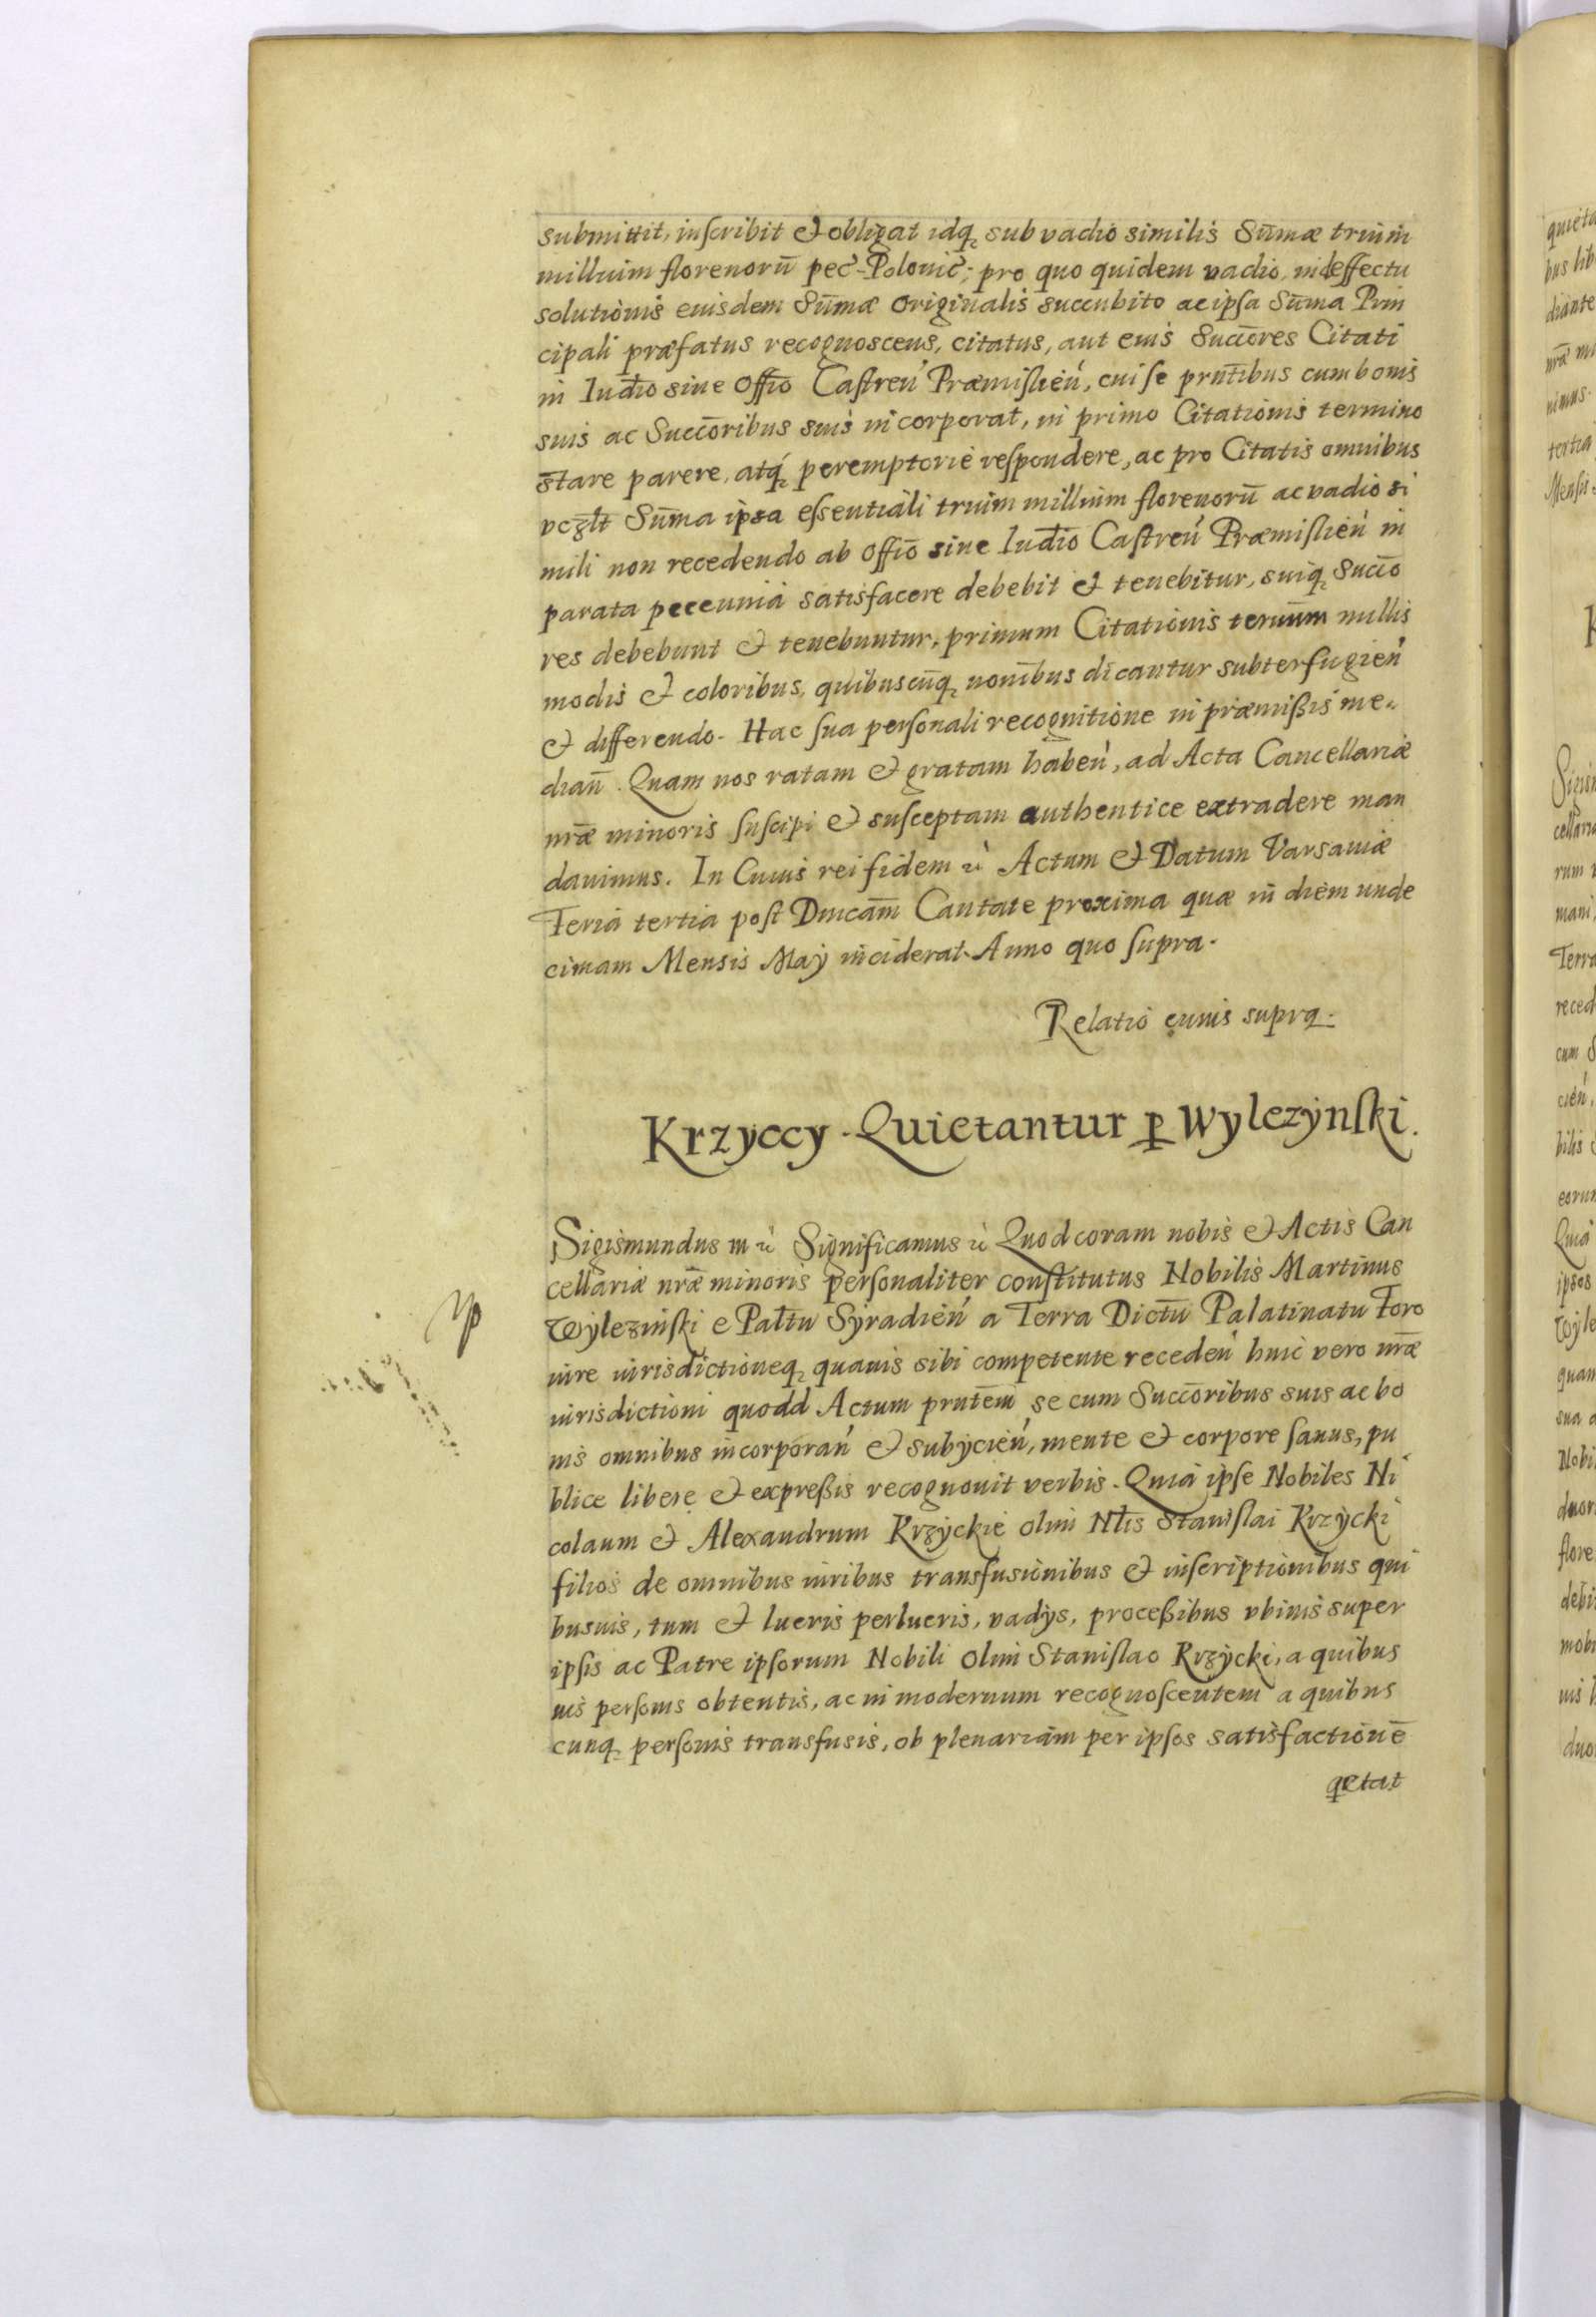 submittit, inscribit et obligat idq₃ sub vadio similis Sum̄æ trium
millium florenorū pec̄. Polonic̄; pro quo quidem vadio, in deffectu
solutionis eiusdem Sūmæ Originalis succubito ac ipsa Sūma Prin
cipali præfatus recognoscens, citatus, aut eius Succōres Citati
in Iudīo siue Offīo Castreń Præmislień, cui se prn̄tibus cum bonis
suis ac Succōribus suis incorporat, in primo Citationis termino
stare parere, atq₃ peremptorie respondere, ac pro Citatis omnibus
Sūma ipsa essentiali trium millium florenorū ac vadio si
mili non recedendo ab Offīo siue Iudīo Castreń Præmislień in
parata peceunia satisfacere debebit et tenebitur, suiq₃ Succō
res debebunt et tenebuntur, primum Citationis termīnum nullis
modis et coloribus, quibuscūq₃ nomībus dicantur subterfugień
et differendo. Hac sua personali recognitione in præmissis me„
diañ. Quam nos ratam et gratam habeń, ad Acta Cancellariæ
nrǣ minoris suscipi et susceptam authentice extradere man
dauimus. In Cuius rei fidem etc̀ Actum et Datum Varsauiæ
Feria tertia post Dnicam̄ Cantate proxima quæ in diem unde
cimam Mensis Maÿ inciderat. Anno quo supra.
Relatio cuius supra.
Krzyccy Quietantur ꝑ Wylezÿnski.
Sigismundus III etc̀ Significamus etc̀ Quod coram nobis et Actis Can
cellariæ nrǣ minoris personaliter constitutus Nobilis Martinus
Wÿlezinski e Pal̄tu Sÿradień a Terra Dictū Palatinatu Foro
iure iurisdictioneq₃ quauis sibi competente recedeń huic vero nrǣ
iurisdictioni quodd Actum prntēm se cum Succōribus suis ac bo
nis omnibus incorporań et subÿcień, mente et corpore sanus, pu
blice libere et expressis recognouit verbis. Quia ipse Nobiles Ni
colaum et Alexandrum Krzÿckie olim Nl̄is Stanislai Krzÿcki
filios de omnibus iuribus transfusionibus et inscriptionibus qui
busuis, tum et lucris perlucris, vadÿs, processibus vbiuis super
ipsis ac Patre ipsorum Nobili olim Stanislao Krzÿcki, a quibus
uis personis obtentis, ac in modernum recognoscentem a quibus
cunq₃ personis transfusis, ob plenariam per ipsos satisfactionē
qetat